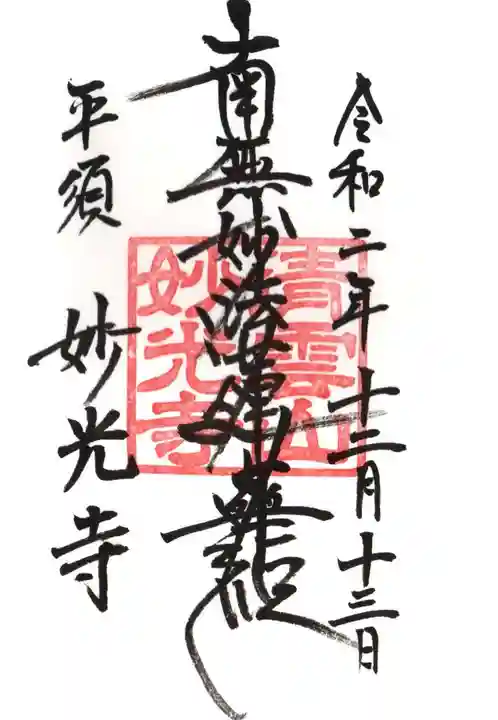 令和二年十二月十三日
南無妙法蓮華経
青雲山
妙光寺
平須 妙光寺